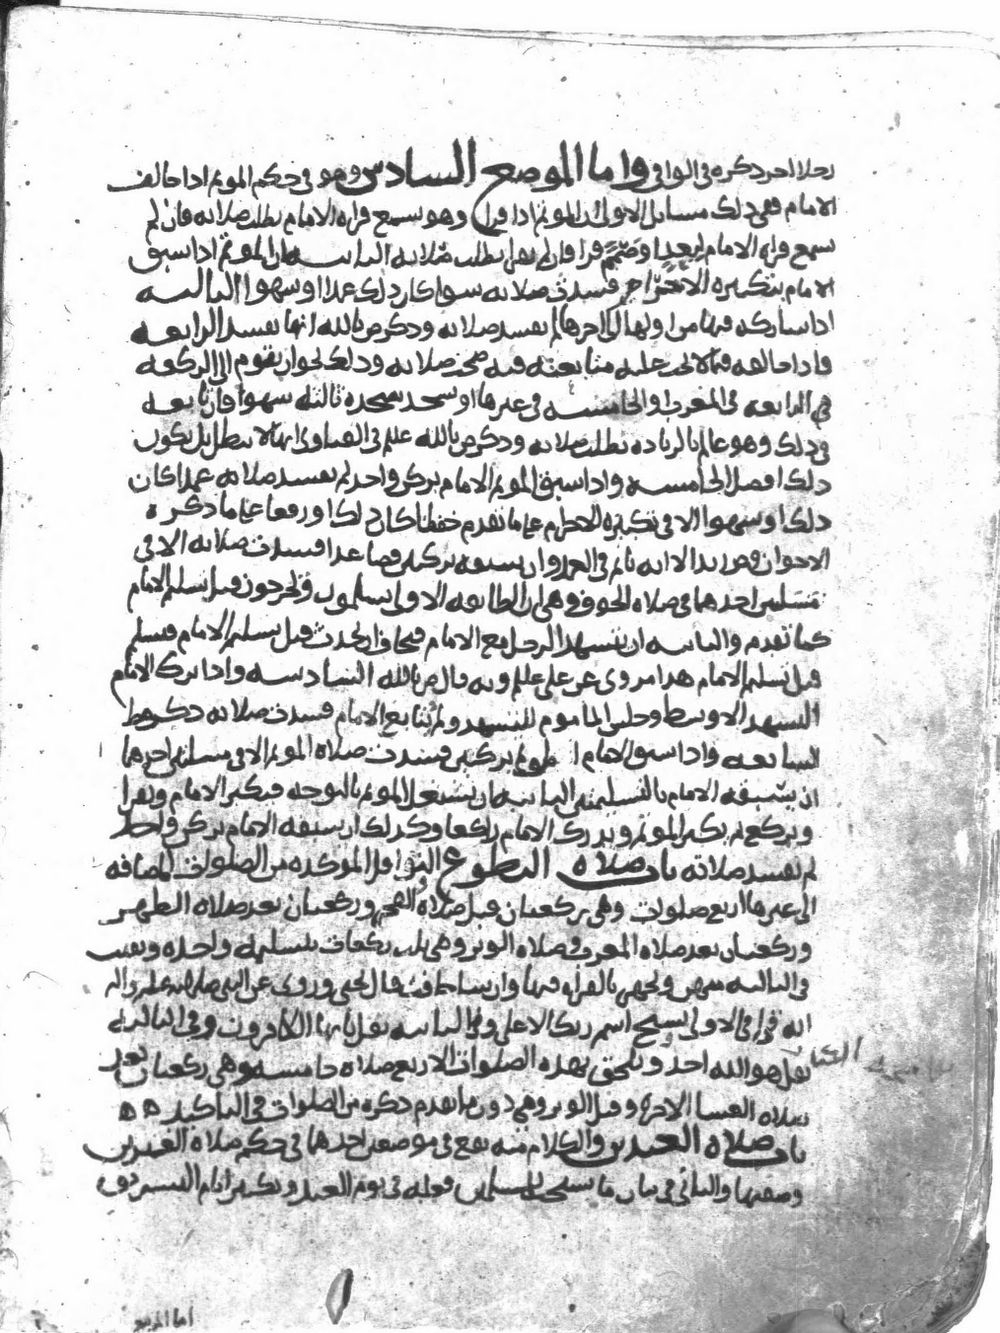 ذكره في الوافي واما الموضع السادس وهو في حكم الموتم اذا خالف
الامام ففي ذلك مسايل الاولى ان الموتم اذا قرا وهو يسمع قراه الامام بطلت صلاته فان لم
يسمع قراه الامام لبعد او صمم قرا فان لم يقرا بطلت صلاته الثانيه ان الموتم اذا سبق
الامام بتكبيره الاحرام فسدت صلاته سوا كان ذلك عمدا او سهوا الثالثه
اذا شاركه فيها من اولها الى اخرها لم تفسد صلاته وذكر ص بالله انها تفسد الرابعه
واذا خالفه فيما لا يجب عليه متابعته فيه صحت صلاته وذلك نحو ان يقوم الى الركعه
في الرابعه في المغرب والخامسه في غيرها او يسجد سجده ثالثه سهوا فان تابعه
في ذلك وهو عالم بالزياده بطلت صلاته وذكر ص بالله علم في الفتاوى انها لا تبطل بل يكون
ذلك افضل الخامسه واذا سبق الموتم الامام بركن واحد لم تفسد صلاته عمدا كان
ذلك او سهوا الا في تكبيره الاحرام على ما تقدم خفضا كان ذلك او رفعا على ما ذكره
الاخوان وص بالله الا انه ياثم في العمد وان سبقه بركنين فصاعدا فسدت صلاته الا في
مسئلتين احدهما في صلاه الخوف وهي ان الطايفه الاولى يسلمون ويخرجون قبل تسليم الامام
كما تقدم والثانيه ان يتشهد الرجل مع الامام فيخاف الحدث قبل تسليم الامام فيسلم
قبل تسليم الامام هذا مروي عن علي علم وبه قال ص بالله السادسه واذا ترك الامام
التشهد الاوسط وجلس الماموم للتشهد ولم يتابع الامام فسدت صلاته ذكره ط
السابعه واذا سبق الامام الموتم بركنين فسدت صلاه الموتم الا في مسئلتين احدهما
ان يسبقه الامام بالتسليمتين الثانيه ان يشتغل الموتم بالتوجه فيكبر الامام ويقرا
ويركع ثم يكبر الموتم ويدرك الامام راكعا وكذلك ان سبقه الامام بركن واحد
لم تفسد صلاته باب صلاه التطوع النوافل الموكده من الصلوات المضافه
الى غيرها اربع صلوات وهي ركعتان قبل صلاه الفجر وركعتان بعد صلاه الظهر
وركعتان بعد صلاه المغرب وصلاه الوتر وهي ثلاث ركعات بتسليمه واحده ويقنت
في الثالثه منهن ويجهر بالقراه فيها وان شا خافت قال يحيى وروي عن النبي صلى الله عليه واله
انه قرا في الاولى بسبح اسم ربك الاعلى وفي الثانيه بقل يا ايها الكافرون وفي الثالثه
بقل هو الله احد ويلحق بهذه الصلوات الاربع صلاه خامسه وهي ركعتان بعد
صلاه العشا الاخره وقبل الوتر وهي دون ما تقدم ذكره من الصلوات في التاكيد ه ه
باب صلاه العيدين والكلام منه يقع في موضعين احدهما في حكم صلاه العيدين
وصفتها والثاني في بيان ما يستحب للمسلمين فعله في يوم العيد وتكبير ايام التشريق